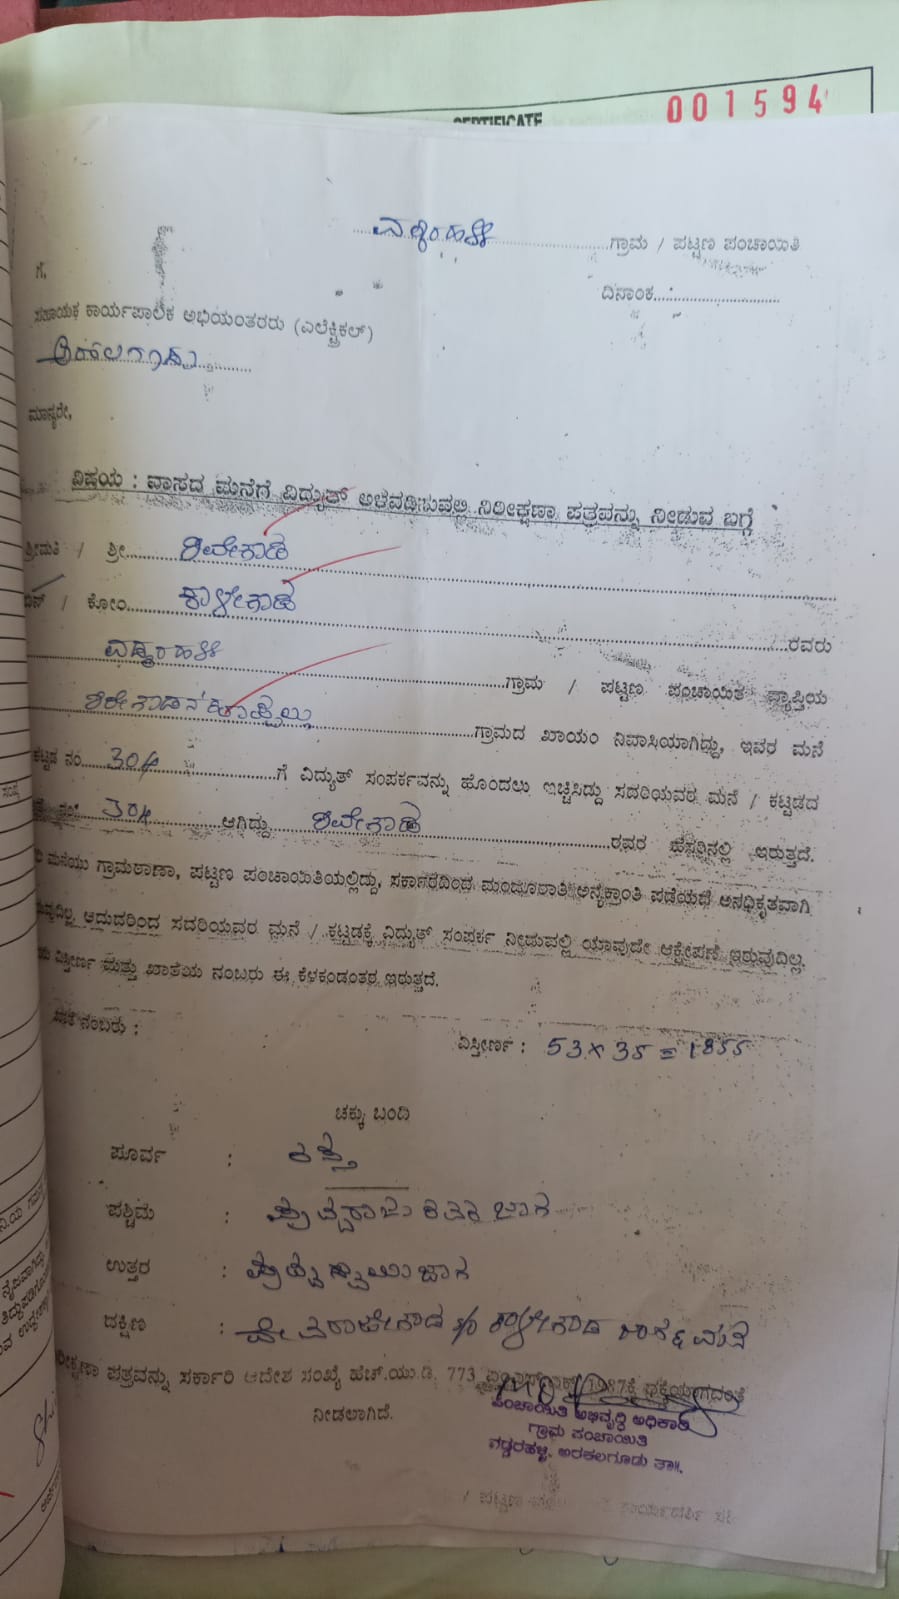 CERTIFICATE
001594
ಗ್ರಾಮ / ಪಟ್ಟಣ ಪಂಚಾಯಿತಿ
ಗೆ,
ದಿನಾಂಕ
ಸಹಾಯಕ ಕಾರ್ಯಪಾಲಕ ಅಭಿಯಂತರರು (ಎಲೆಕ್ಟ್ರಿಕಲ್)
ಮಾನ್ಯರೇ,
ವಿಷಯ : ವಾಸದ ಮನೆಗೆ ವಿದ್ಯುತ್ ಅಳವಡಿಸುವಲ್ಲಿ ನಿರೀಕ್ಷಣಾ ಪತ್ರವನ್ನು ನೀಡುವ ಬಗ್ಗೆ
ಶ್ರೀಮತಿ / ಶ್ರೀ ಶಿವೇಗೌಡ
ಬಿನ್ / ಕೋಂ ಕಾಳೇಗೌಡ ರವರು
ವಡ್ಡರಹಳ್ಳಿ ಗ್ರಾಮ / ಪಟ್ಟಣ ಪಂಚಾಯಿತಿ ವ್ಯಾಪ್ತಿಯ
ಗ್ರಾಮದ ಖಾಯಂ ನಿವಾಸಿಯಾಗಿದ್ದು, ಇವರ ಮನೆ
ಕಟ್ಟಡ ನಂ. 304 ಗೆ ವಿದ್ಯುತ್ ಸಂಪರ್ಕವನ್ನು ಹೊಂದಲು ಇಚ್ಚಿಸಿದ್ದು ಸದರಿಯವರ ಮನೆ / ಕಟ್ಟಡದ
ನಂ. 304 ಆಗಿದ್ದು ಶಿವೇಗೌಡ ರವರ ಹೆಸರಿನಲ್ಲಿ ಇರುತ್ತದೆ.
ಮನೆಯು ಗ್ರಾಮಠಾಣಾ, ಪಟ್ಟಣ ಪಂಚಾಯಿತಿಯಲ್ಲಿದ್ದು, ಸರ್ಕಾರದಿಂದ ಮಂಜೂರಾತಿ ಅನ್ಯಕ್ರಾಂತಿ ಪಡೆಯದೆ ಅನಧಿಕೃತವಾಗಿ
ಆದುದರಿಂದ ಸದರಿಯವರ ಮನೆ / ಕಟ್ಟಡಕ್ಕೆ ವಿದ್ಯುತ್ ಸಂಪರ್ಕ ನೀಡುವಲ್ಲಿ ಯಾವುದೇ ಆಕ್ಷೇಪಣೆ ಇರುವುದಿಲ್ಲ.
ವಿಸ್ತೀರ್ಣ ಮತ್ತು ಖಾತೆಯ ನಂಬರು ಈ ಕೆಳಕಂಡಂತರ ಇರುತ್ತದೆ.
ನಂಬರು :
ವಿಸ್ತೀರ್ಣ : 53 x 35 = 1855
ಚಕ್ಕು ಬಂದಿ
ಪೂರ್ವ : ರಸ್ತೆ
ಪಶ್ಚಿಮ :
ಉತ್ತರ :
ದಕ್ಷಿಣ : ಕಾಳೇಗೌಡ
ಪತ್ರವನ್ನು ಸರ್ಕಾರಿ ಆದೇಶ ಸಂಖ್ಯೆ ಹೆಚ್.ಯು.ಡಿ. 773
ನೀಡಲಾಗಿದೆ.
ಪಂಚಾಯಿತಿ ಅಭಿವೃದ್ಧಿ ಅಧಿಕಾರಿ
ಗ್ರಾಮ ಪಂಚಾಯಿತಿ
ವಡ್ಡರಹಳ್ಳಿ, ಅರಕಲಗೂಡು ತಾ||.
/ ಪಟ್ಟಣ